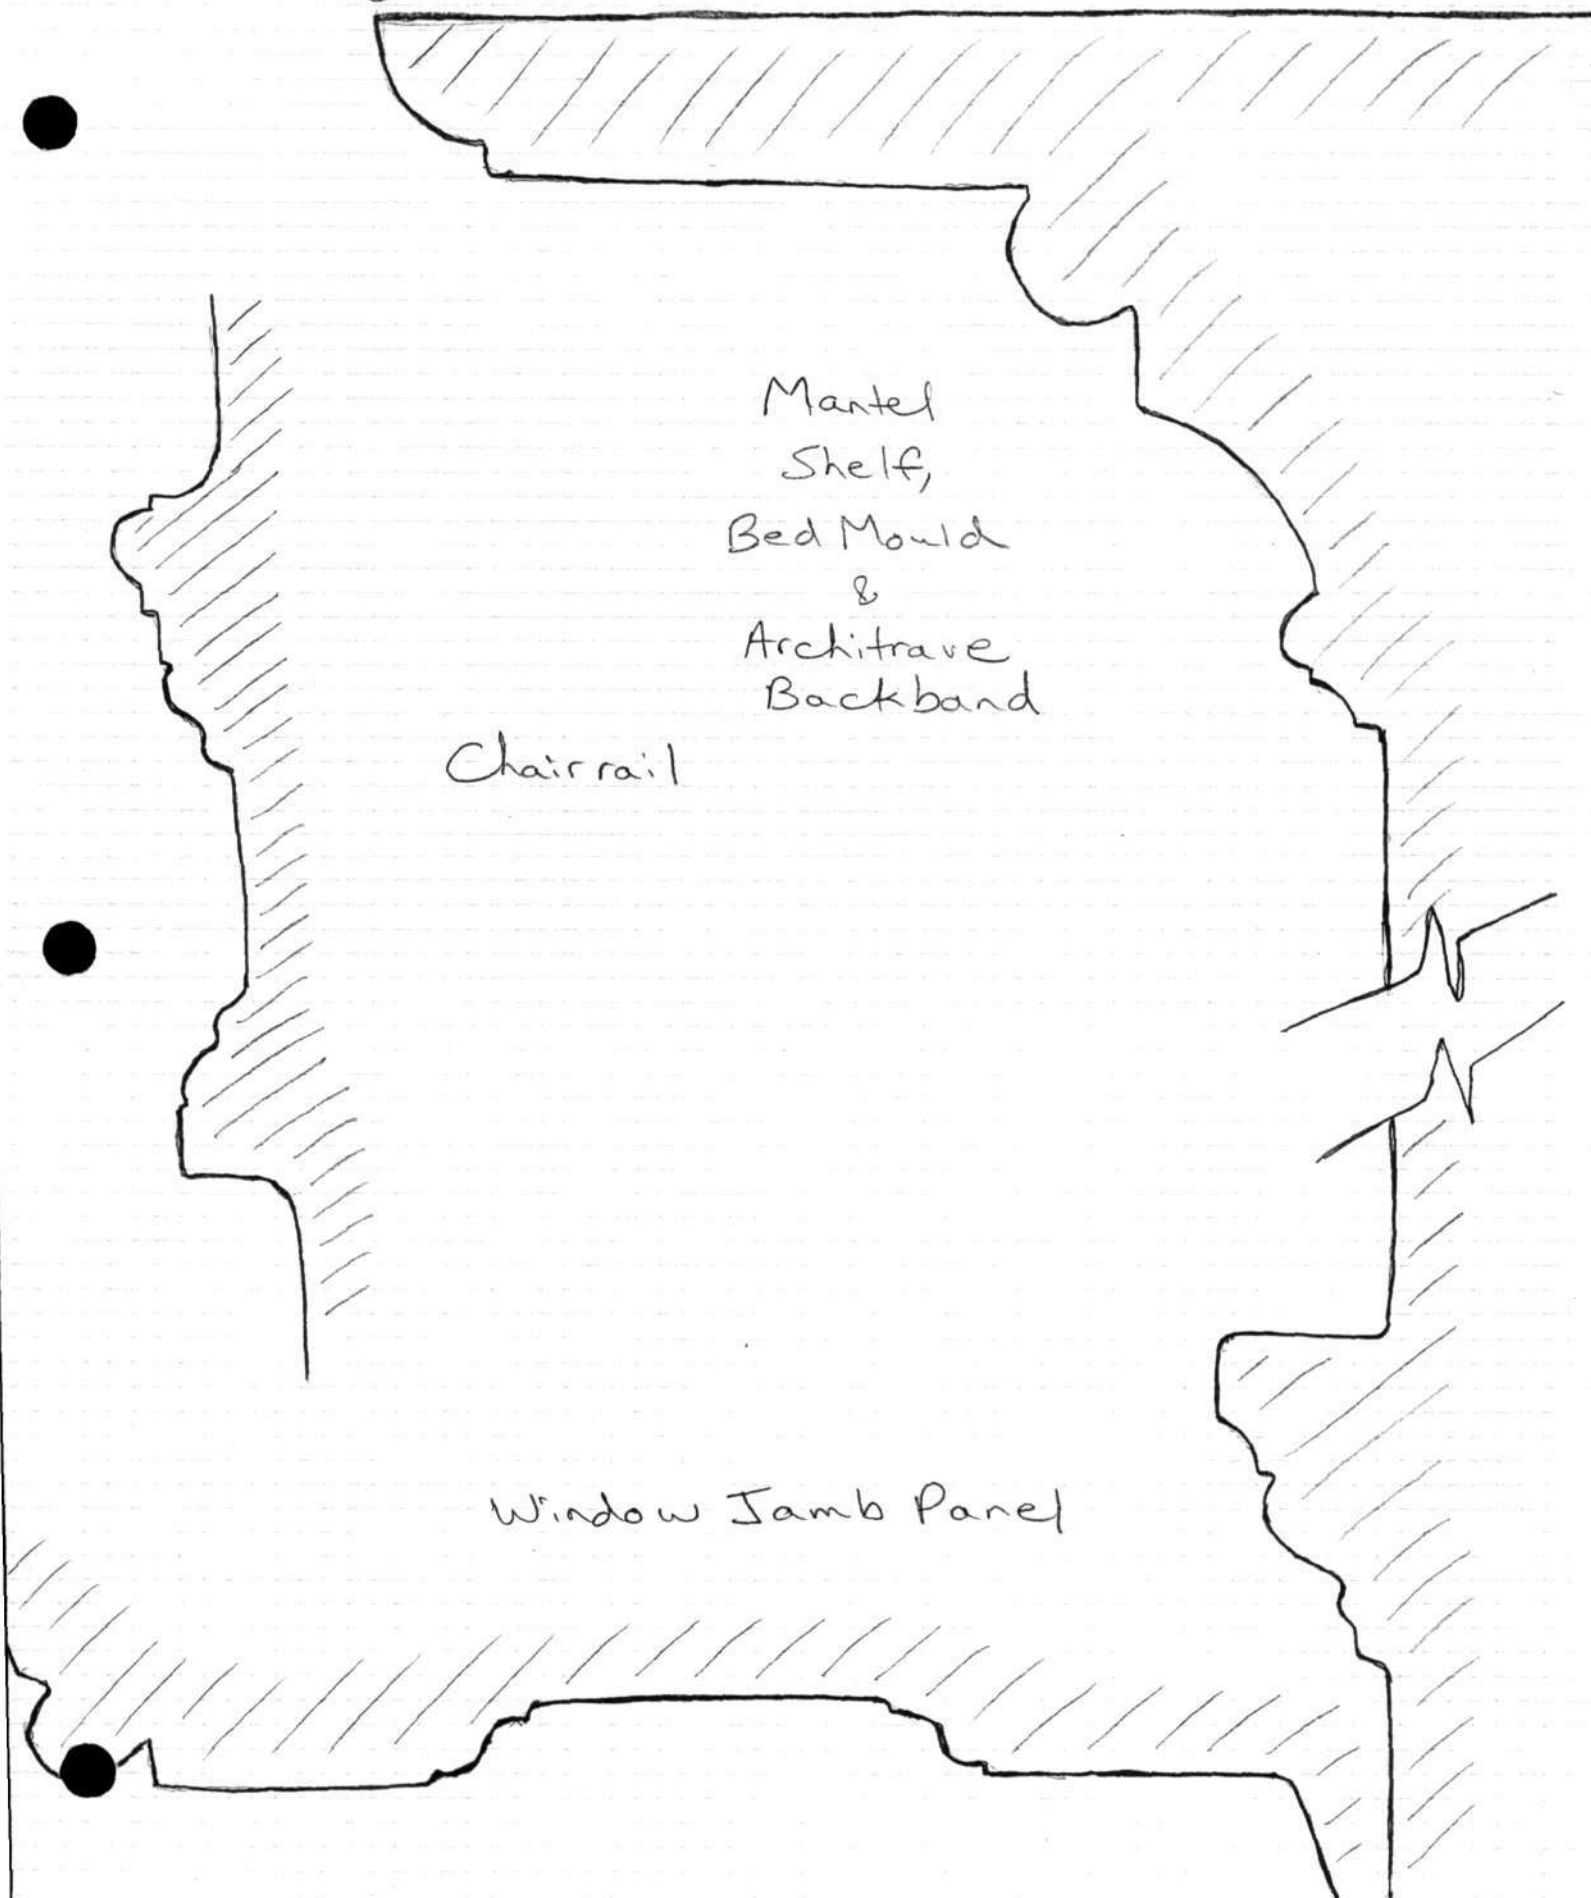 Mantel
Shelf,
Bed Mould
&
Architrave
Backband
Chairrail
Window Jamb Panel